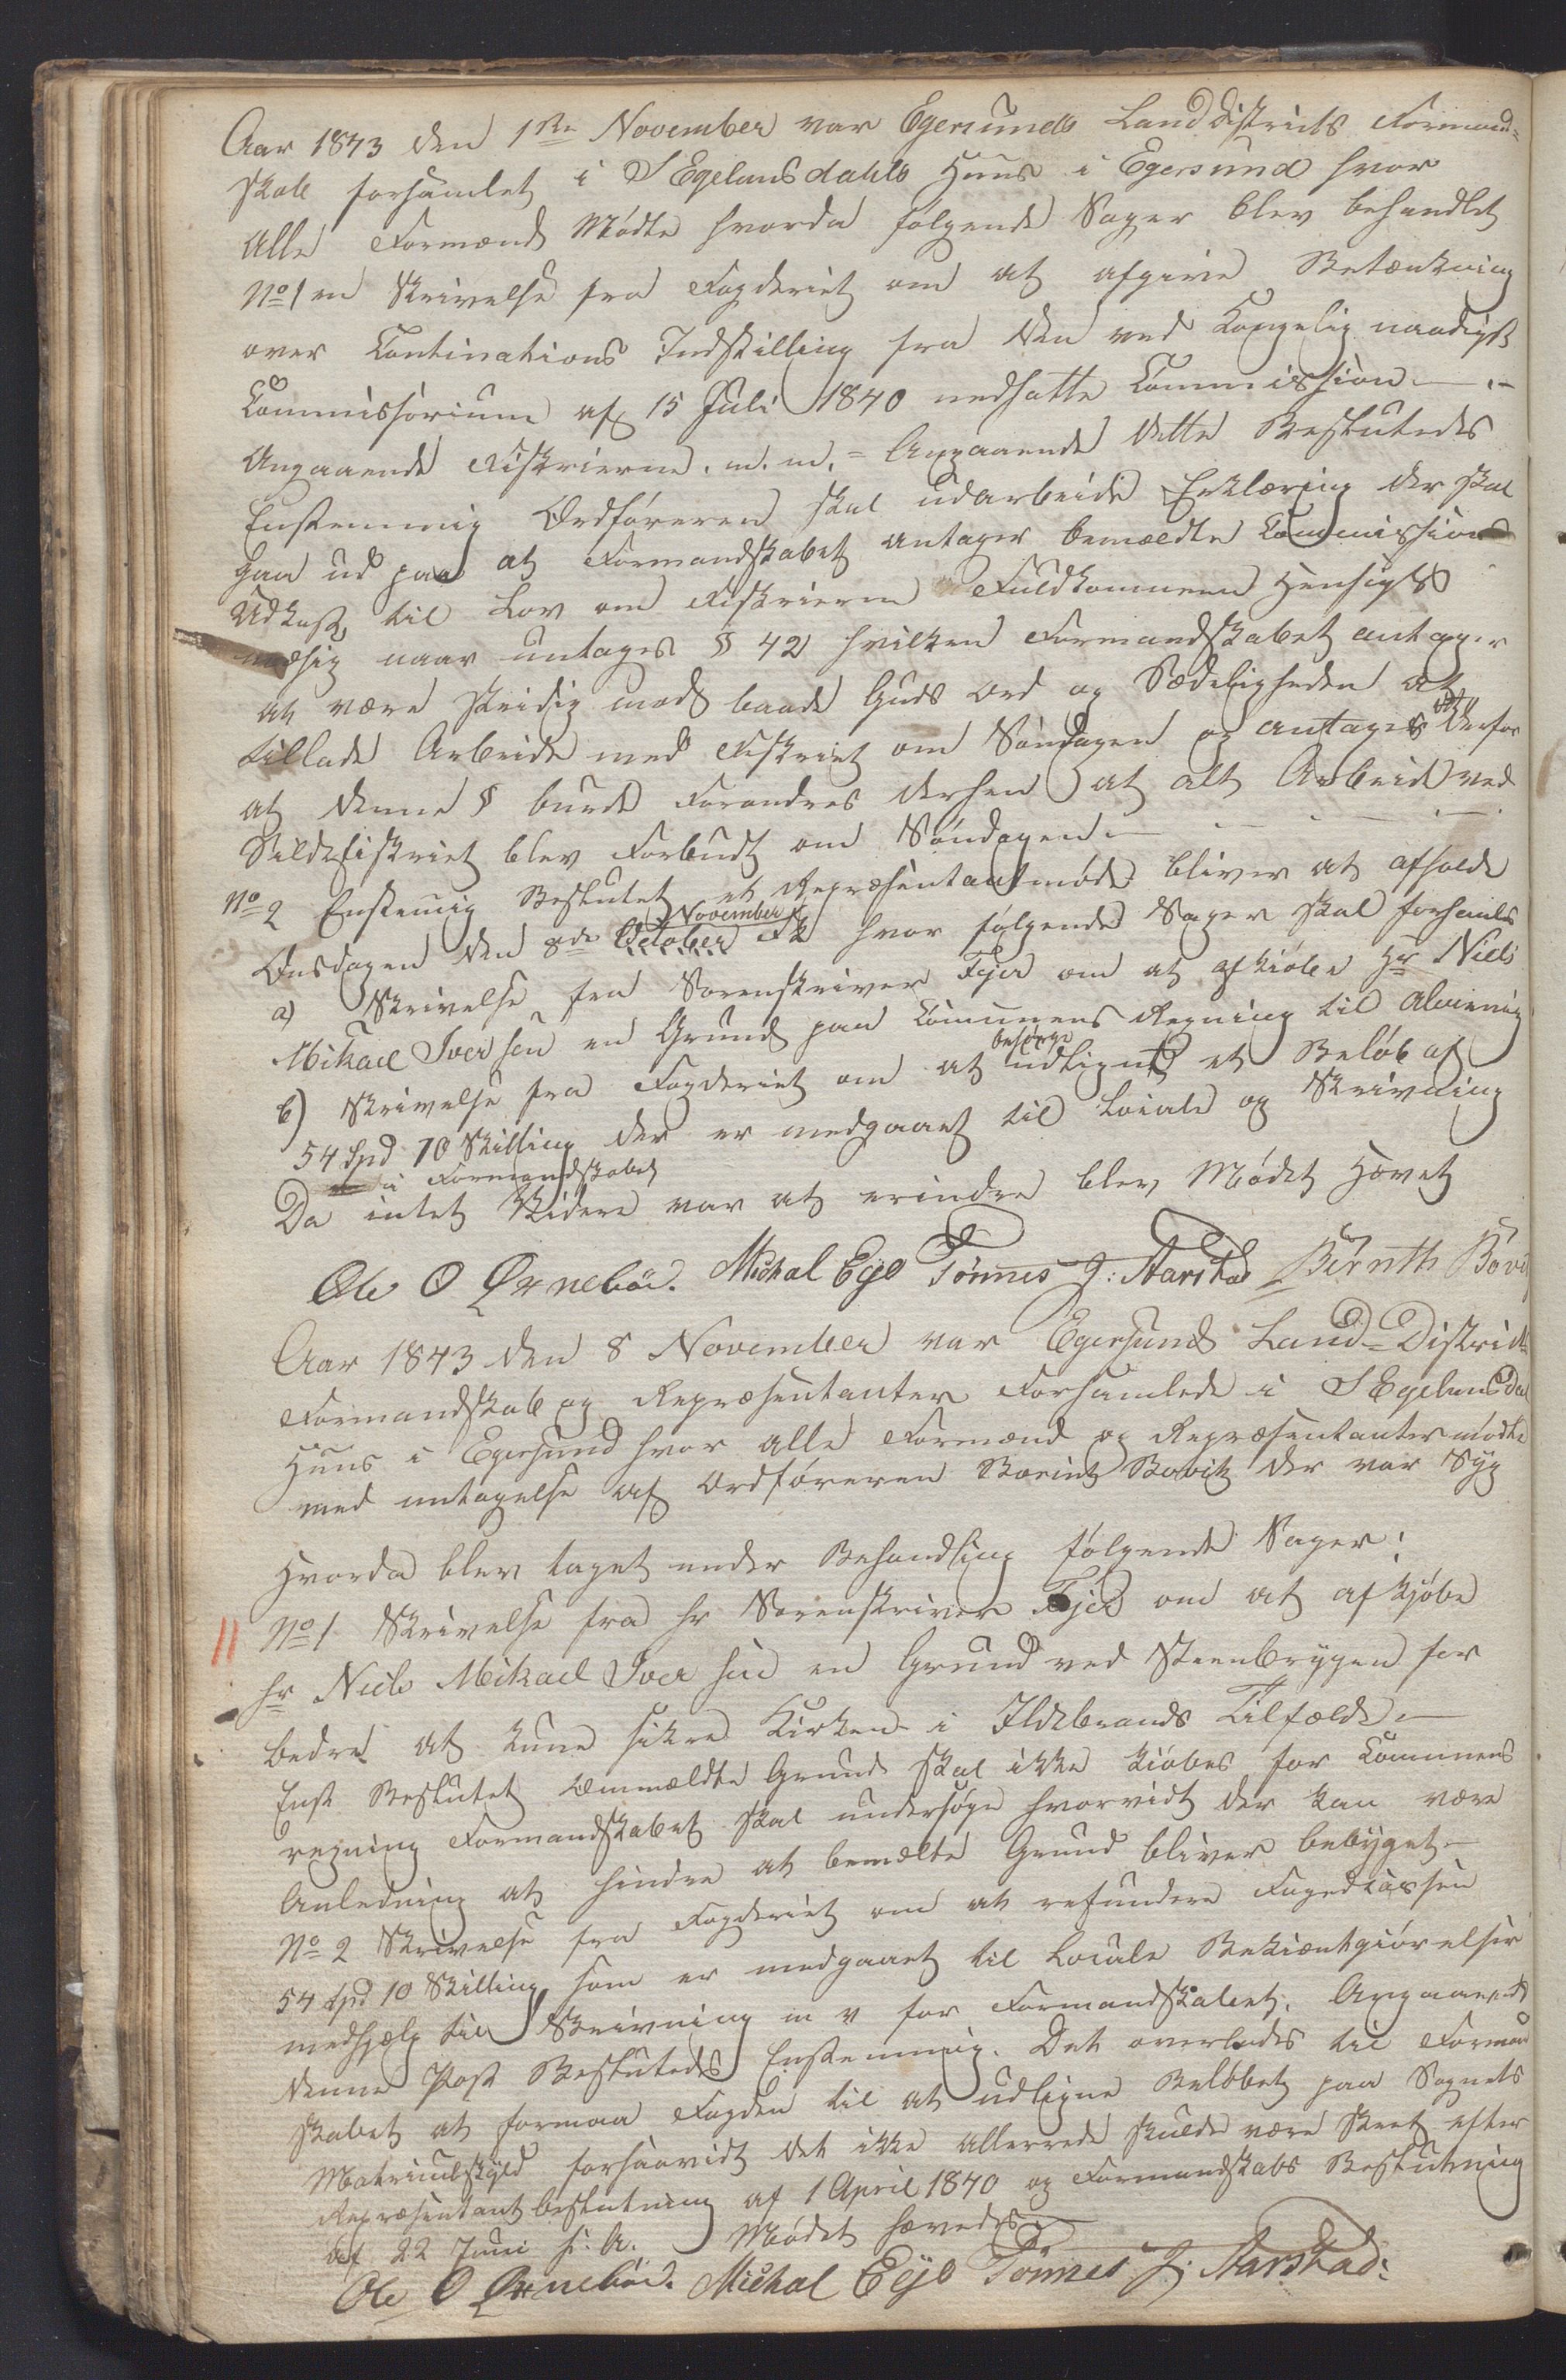 Aar 1843 den 1ste November var Egersunds Landdistricts Formand-
skab forsamlet i S Egelandsdahls Huus i Egersund hvor
alle Formænd Mødte hvorda følgende Sager blev behandlet
No 1 en Skrivelse fra Fogderiet om at afgive Betænkning
over Continations Indstilling fra den ved Kongelig naadigst
Commissorium af 15 Juli 1840 nedsatte Commission —
Angaaende Fiskrierne. m. m. = Angaaende dette Beslutedes
Enstemmig Ordføreren skal udarbeide Erklæring der skal
gaa ud paa at Formandskabet antager bemældte Commissions
Udkast til Lov om Fiskrierne Fuldkommen Hensigts
mæsig naar untages § 42 hvilken Formandskabet antager
at være stridig mod baade Guds ord og Sædeligheden at
tillade Arbeide med Fiskriet om Søndagen og antages det derfor
at denne § burde Forandres derhen at alt Arbeide ved
Sildefiskriet blev Forbudt om Søndagen —
No 2 Enstemig Beslutet et Repræsentantmøde bliver at afholde
November
Onsdagen den 8de October Fk hvor følgende Sager skal forhanls
a) Skrivelse fra Sorenskriver Fejer om at afkiøbe Hr Niels
Mikael Iversen en Grund paa Communens Regning til Almening
besørge
b) Skrivelse fra Fogderiet om at udlignet et Beløb af
54 Spd 10 Skilling der er medgaaet til Locale og Skrivning
i Formandskabet
Da intet Videre var at erindre blev Mødet Hævet
Ole O Ørnebøe. Michal Eije Tönnes J: Aarstad Bernth Bøvig
Aar 1843 den 8 November var Egersunds Land-Districts
Formandskab og Repræsentanter Forsamlede i S Egelandsdal
Huus i Egersund hvor alle Formænd og Repræsentanter mødte
med untagelse af Ordføreren Berint Bøvik der var Syg
Hvorda blev taget under Behandling følgende Sager:
No 1 Skrivelse fra hr Sorenskriver Fejer om at afkjøbe
hr Niels Mikael Iversen en Grund ved Steenbryggen for
bedre at kune sikre Kirken i Ildebrands Tilfælde —
Enst Beslutet Ommældte Grund skal ikke kiøbes for Communens
regning Formandskabet skal undersøge hvorvidt der kan være
Anledning at hindre at bemælte Grund bliver bebyget —
No 2 Skrivelse fra Fogderiet om at refundere Fogedkassen
54 Spd 10 Skilling som er medgaaet til Locale Bekiæntgiørelser
medhjælp til Skrivning m v for Formandskabet. Angaaende
denne Post Beslutedes Enstemmig. Det overlades til Formand
skabet at formaa Fogden til at udligne Beløbet paa Sognets
Matriculskyld forsaavidt det ikke allerrede skulde være skeet efter
Repræsentantbeslutning af 1 April 1840 og Formandskabs Beslutning
af 22 Juni s. A. Mødet hævedes
Ole O Ørnebøe. Michal Eije Tönnes J: Aarstad: